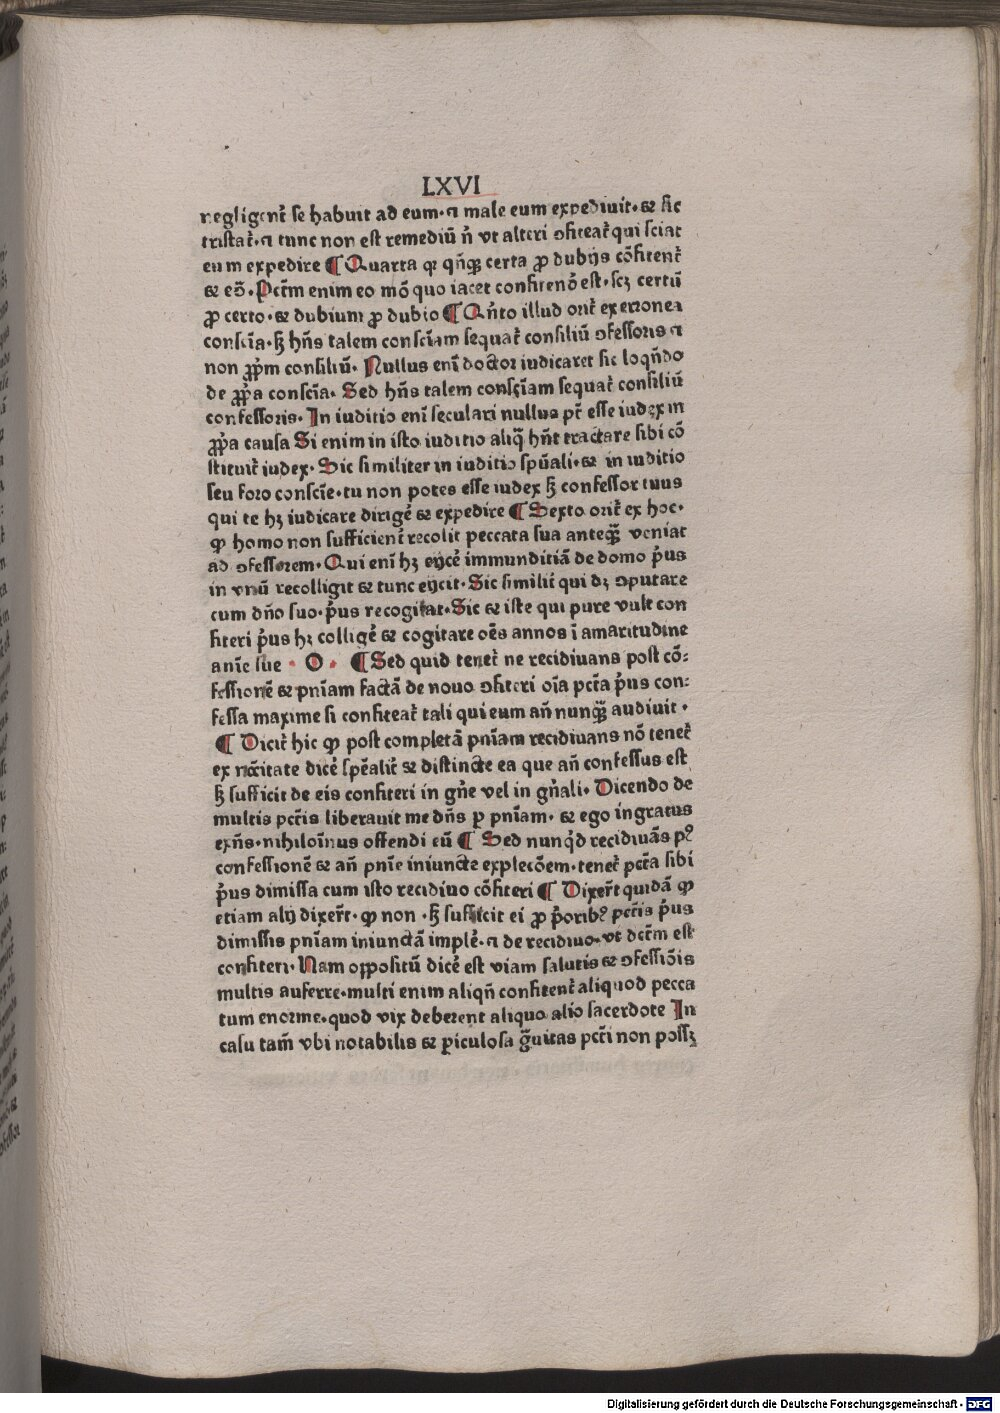 LXVI
negligent᷑ se habuit ad eum·⁊ male eum expediuit·⁊ sic
tristat᷑·⁊ tunc non est remediū n̄ vt alteri ꝯfiteat᷑ qui sciat
eum expedire ¶ Quarta qꝛ qn̄qꝫ certa ꝓ dubijs cōfitent᷑
⁊ eō· Pctm̄ enim eo mō quo iacet confitenō est·scꝫ certū
ꝓ certo·⁊ dubium ꝓ dubio ¶ Qn̄to illud orit᷑ ex erronea
consciā·ꝫ hn̄s talem consciam sequat᷑ consiliū ꝯfessoris ⁊
non ꝓpm̄ consiliū· Nullus enī doctor iudicaret sic loqn̄do
de ꝓpa consciā· Sed hn̄s talem consciam sequat᷑ consiliū
confessoris· In iuditio enī seculari nullus pt̄ esse iudex in
ꝓpa causa Si enim in isto iuditio aliq̄ hn̄t tractare sibi cō
stituit᷑ iudex· Sic similiter in iuditio spūali·⁊ in iuditio
seu foro conscīe·tu non potes esse iudex ꝫ confessor tuus
qui te hꝫ iudicare dirigē ⁊ expedire ¶ Sexto orit᷑ ex hoc·
ꝙ homo non sufficient᷑ recolit peccata sua anteqꝫ̄ veniat
ad ꝯfessorem· Qui enī hꝫ eijcē immunditiā de domo p̄us
in vnū recolligit ⁊ tunc eijcit· Sic similit᷑ qui dꝫ ꝯputare
cum dn̄o suo·p̄us recogitat·Sic ⁊ iste qui pure vult con
fiteri p̄us hꝫ colligē ⁊ cogitare oēs annos ī amaritudine
anīe sue · O · ¶ Sed quid tenet᷑ ne recidiuans post cō⸗
fessionē ⁊ pnīam factā de nouo ꝯfiteri oīa pctā p̄us con⸗
fessa maxime si confiteat᷑ tali qui eum an̄ nunqꝫ̄ audiuit ·
¶ Dicit᷑ hic ꝙ post completā pnīam recidiuans nō tenet᷑
ex nccītate dicē spēalit᷑ ⁊ distincte ea que an̄ confessus est
ꝫ sufficit de eis confiteri in gn̄e vel in gn̄ali· Dicendo de
multis pctīs liberauit me dn̄s ꝑ pnīam· ⁊ ego ingratus
exn̄s·nihiloīnus offendi eū ¶ Sed nunqͥd recidiuās pꝰ
confessionē ⁊ an̄ pnīe iniuncte explecōem·tenet᷑ pctā sibi
p̄us dimissa cum isto recidiuo cōfiteri ¶ Dixer̄t quidā ꝙ
etiam alij dixer̄t·ꝙ non ·ꝫ sufficit ei ꝓ p̄oribꝰ pctīs p̄us
dimissis pnīam iniunctā implē·⁊ de recidiuo·vt dctm̄ est
confiteri· Nam oppositū dicē est viam salutis ⁊ ꝯfessiōis
multis auferre·multi enim aliqn̄ confitent᷑ aliquod pecca
tum enorme·quod vix deberent aliquo alio sacerdote In
casu tam̄ vbi notabilis ⁊ ꝑiculosa gͣuitas pctī non possꝫ
Digitalisierung gefördert durch die Deutsche Forschungsgemeinschaft - DFG